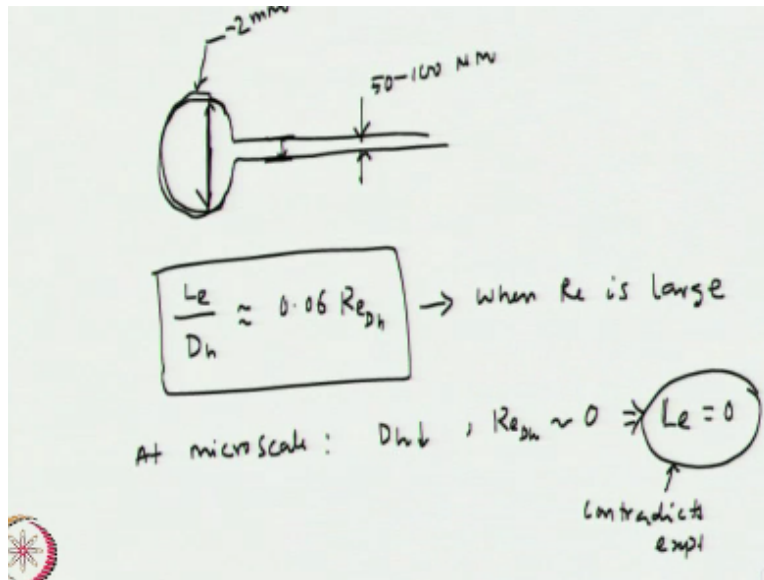 ~2mm
50-100 μm
Le/Dh ≈ 0.06 ReDh → when Re is large
At microscale : Dh↓ , ReDh ~ 0 ⇒ Le = 0
Contradicts
expt